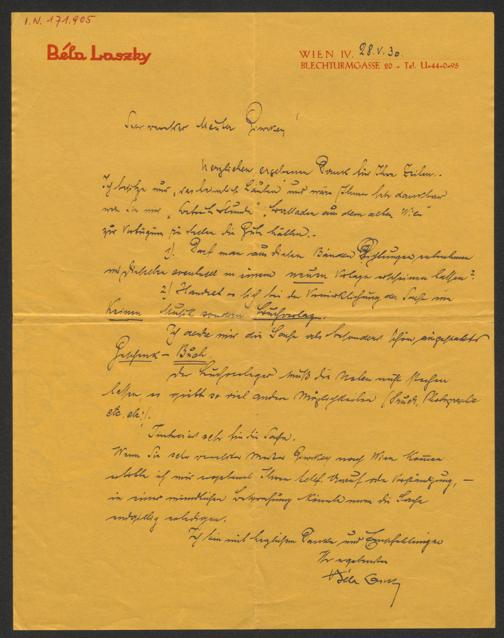 I.N. 171.905
Béla Laszky
WIEN IV. 28.V.30.
BLECHTURMGASSE 20 - Tel. U-44-0-95
Sehr verehrter Meister Ginzkey!
Herzlichen ergebenen Dank für Ihre Zeilen.
Ich besitze nur "das heimliche Läuten" und wäre Ihnen sehr dankbar
wenn Sie mir " Balladen aus dem alten Wien"
zur Verfügung zu stellen die Güte hätten.-
1) Darf man aus diesen Bänden Dichtungen entnehmen
und dieselben eventuell in einem neuen Verlage erscheinen lassen?
2) Handelt es sich bei der Verwirklichung der Sache um
keinen Musik sondern Buchverlag.
Ich denke mir die Sache als besonders schön ausgestattetes
Geschenk - Buch.
Der Buchverleger muß die Noten nicht stechen
lassen, es gibt so viel andere Möglichkeiten
etc. etc.
sehr für die Sache.
Wenn Sie sehr verehrter Meister Ginzkey nach Wien kommen
erbitte ich mir Ihren Anruf oder Verständigung, -
in einer mündlichen Besprechung könnte man die Sache
endgültig erledigen.
Ich bin mit herzlichem Danke und Empfehlungen
Ihr ergebener
Béla Laszky